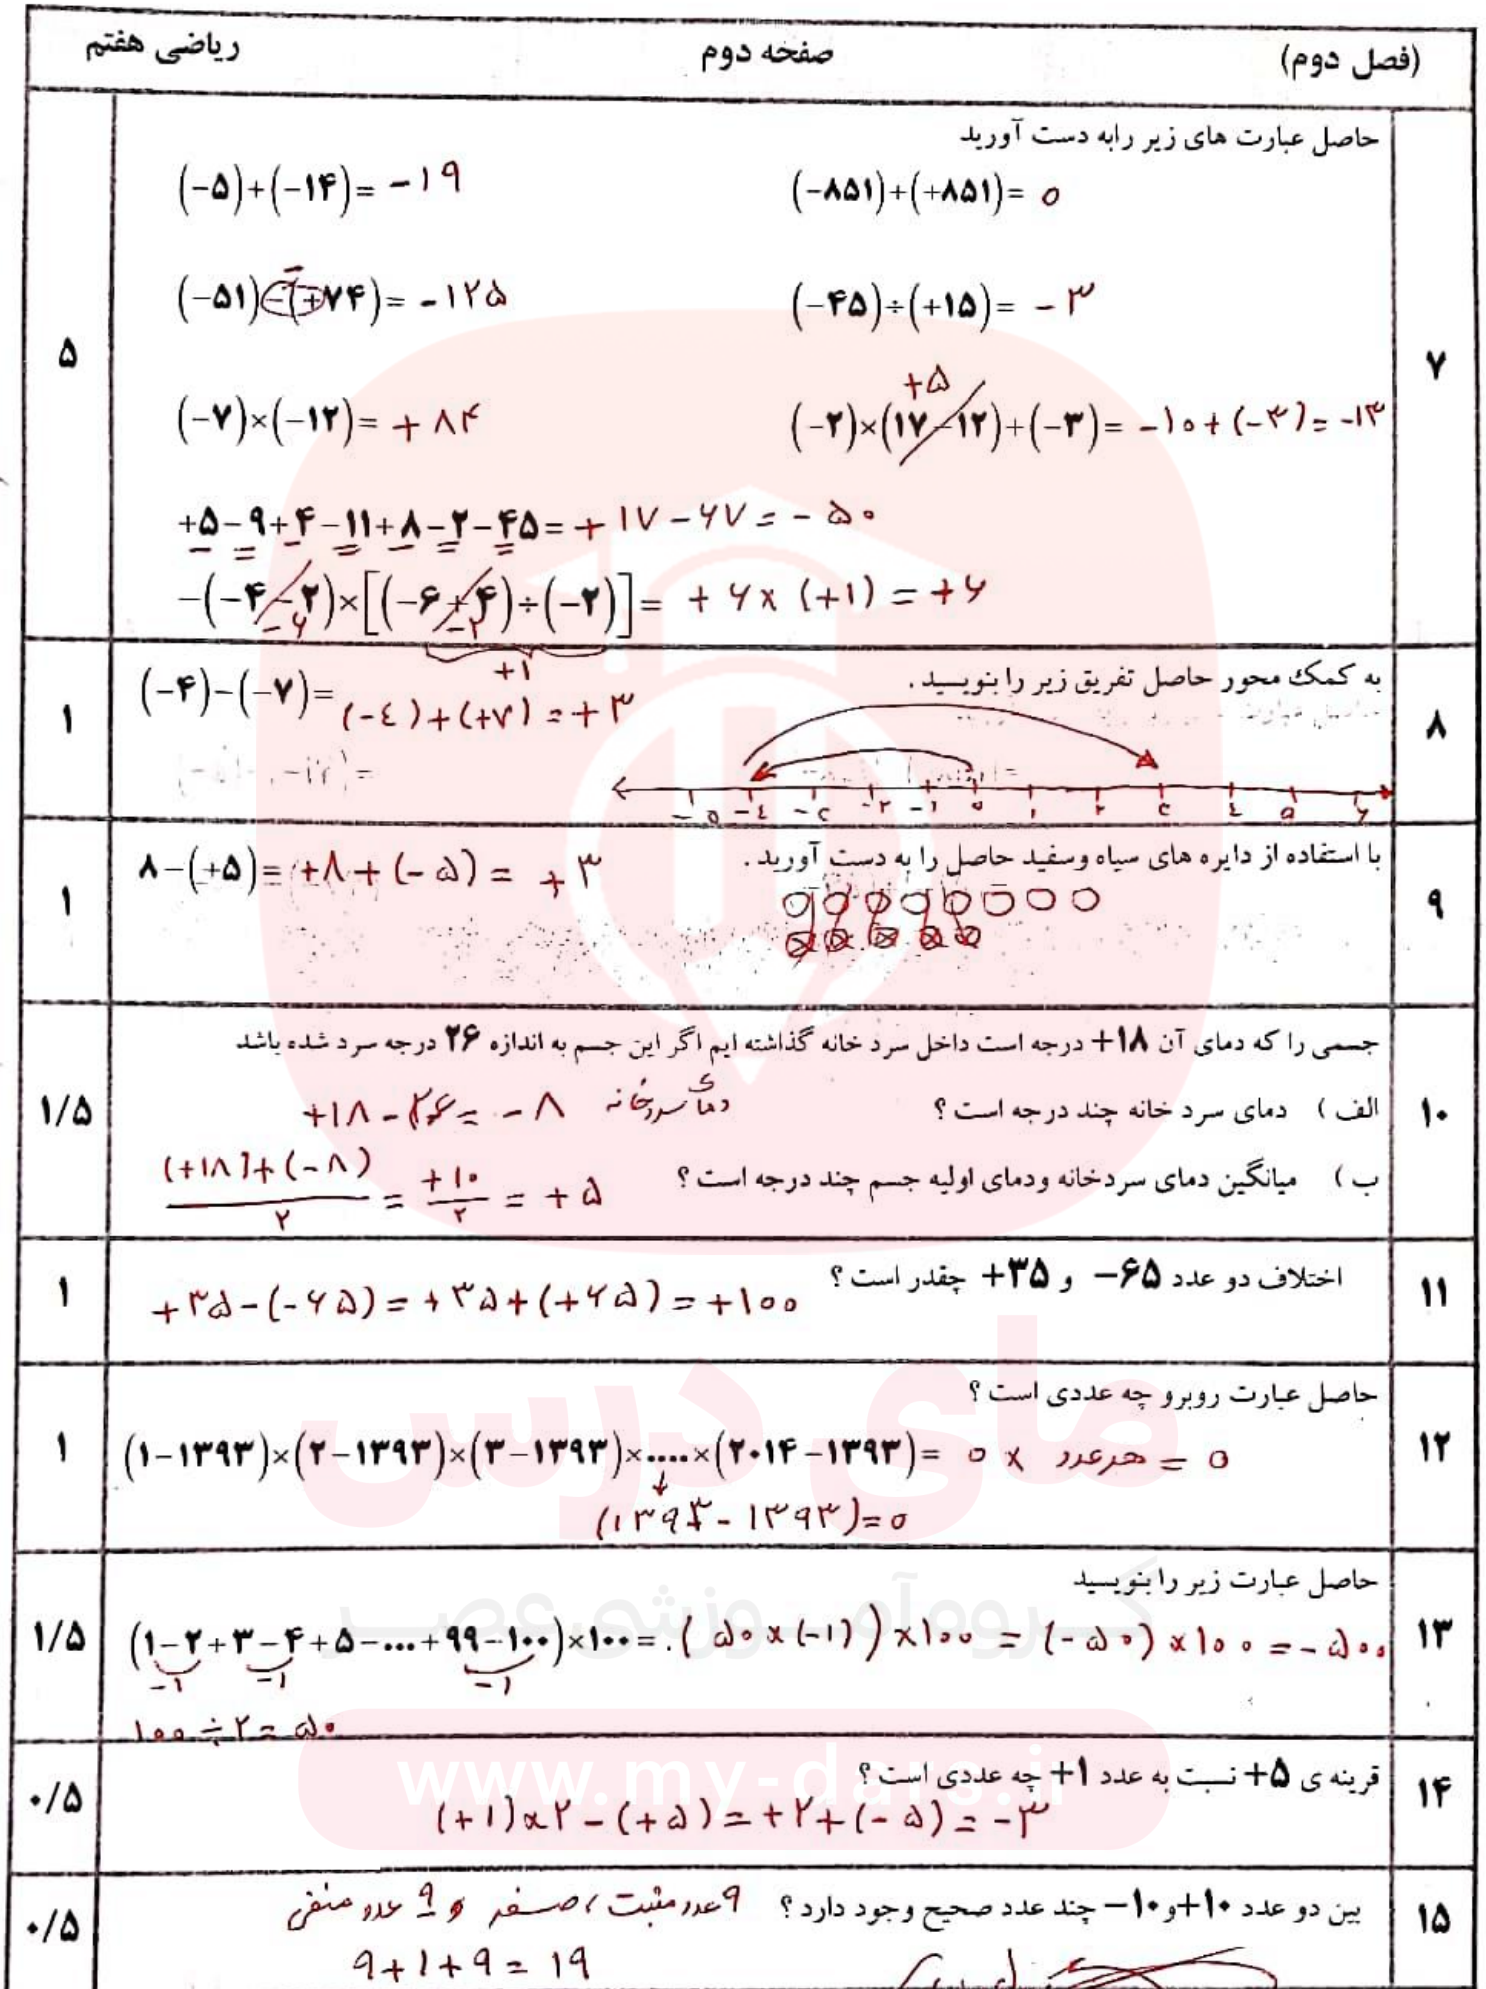 (فصل دوم) صفحه دوم ریاضی هفتم
۷ حاصل عبارت های زیر رابه دست آورید ۵
(-۸۵۱)+(+۸۵۱)= ۰
(-۵)+(-۱۴)= -۱۹
(-۴۵)÷(+۱۵)= -۳
(-۵۱)-(+۷۴)= -۱۲۵
-
+۵
(-۲)×(۱۷-۱۲)+(-۳)= -۱۰+(-۳)= -۱۳
(-۷)×(-۱۲)= +۸۴
+۵-۹+۴-۱۱+۸-۲-۴۵= +۱۷-۶۷= -۵۰
-(-۴-۲)×[(-۶+۴)÷(-۲)]= +۶×(+۱)=+۶
-۶ -۲
+۱
۸ به کمک محور حاصل تفریق زیر را بنویسید . ۱
(-۴)-(-۷)= (-٤)+(+۷)=+۳
-۵ -٤ -۳ -۲ -۱ ۰ ۱ ۲ ۳ ٤ ۵ ۶
۹ با استفاده از دایره های سیاه وسفید حاصل را به دست آورید . ۱
۸-(+۵)= +۸+(-۵)= +۳
۱۰ جسمی را که دمای آن ۱۸+ درجه است داخل سرد خانه گذاشته ایم اگر این جسم به اندازه ۲۶ درجه سرد شده باشد ۱/۵
الف ) دمای سرد خانه چند درجه است ؟ +۱۸-۲۶= -۸ دمای سردخانه
ب ) میانگین دمای سردخانه ودمای اولیه جسم چند درجه است ؟
(+۱۸)+(-۸)/۲ = +۱۰/۲ = +۵
۱۱ اختلاف دو عدد ۶۵- و ۳۵+ چقدر است ؟ ۱
+۳۵-(-۶۵)=+۳۵+(+۶۵)=+۱۰۰
۱۲ حاصل عبارت روبرو چه عددی است ؟ ۱
(۱-۱۳۹۳)×(۲-۱۳۹۳)×(۳-۱۳۹۳)×....×(۲۰۱۴-۱۳۹۳)= ۰ × هرعدد = ۰
(۱۳۹۳-۱۳۹۳)=۰
۱۳ حاصل عبارت زیر را بنویسید ۱/۵
(۱-۲+۳-۴+۵-...+۹۹-۱۰۰)×۱۰۰= (۵۰×(-۱))×۱۰۰ = (-۵۰)×۱۰۰=-۵۰۰۰
-۱ -۱ -۱
۱۰۰÷۲=۵۰
۱۴ قرینه ی ۵+ نسبت به عدد ۱+ چه عددی است ؟ ۰/۵
(+۱)×۲-(+۵)=+۲+(-۵)=-۳
۱۵ بین دو عدد ۱۰+و۱۰- چند عدد صحیح وجود دارد ؟ ۹عدد مثبت ، صفر و ۹ عدد منفی ۰/۵
۹+۱+۹=۱۹
مای درس
گروه آموزشی عصر
www.my-dars.ir